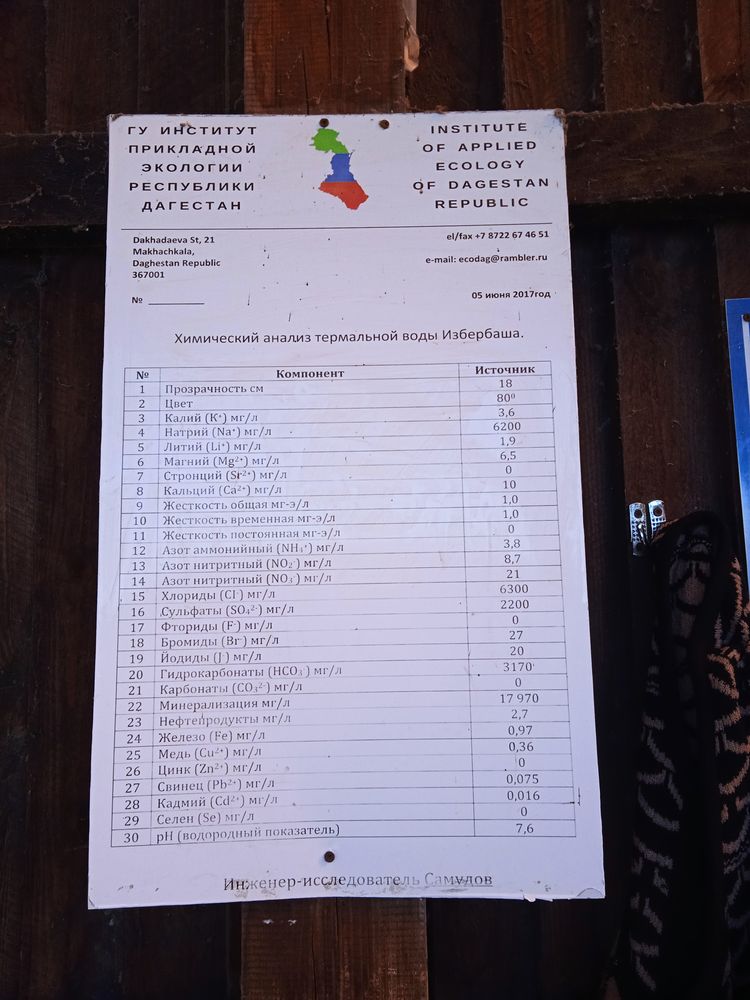 ГУ ИНСТИТУТ
ПРИКЛАДНОЙ
ЭКОЛОГИИ
РЕСПУБЛИКИ
ДАГЕСТАН
INSTITUTE
OF APPLIED
ECOLOGY
OF DAGESTAN
REPUBLIC
Dakhadaeva St, 21
Makhachkala,
Daghestan Republic
367001
el/fax +7 8722 67 46 51
e-mail: ecodag@rambler.ru
№ ________
05 июня 2017год
Химический анализ термальной воды Избербаша.
№ Компонент Источник
1 Прозрачность см 18
2 Цвет 80⁰
3 Калий (K⁺) мг/л 3,6
4 Натрий (Na⁺) мг/л 6200
5 Литий (Li⁺) мг/л 1,9
6 Магний (Mg²⁺) мг/л 6,5
7 Стронций (Sr²⁺) мг/л 0
8 Кальций (Ca²⁺) мг/л 10
9 Жесткость общая мг-э/л 1,0
10 Жесткость временная мг-э/л 1,0
11 Жесткость постоянная мг-э/л 0
12 Азот аммонийный (NH₄⁺) мг/л 3,8
13 Азот нитритный (NO₂⁻) мг/л 8,7
14 Азот нитритный (NO₃⁻) мг/л 21
15 Хлориды (Cl⁻) мг/л 6300
16 Сульфаты (SO₄²⁻) мг/л 2200
17 Фториды (F⁻) мг/л 0
18 Бромиды (Br⁻) мг/л 27
19 Йодиды (J⁻) мг/л 20
20 Гидрокарбонаты (HCO₃⁻) мг/л 3170
21 Карбонаты (CO₃²⁻) мг/л 0
22 Минерализация мг/л 17 970
23 Нефтепродукты мг/л 2,7
24 Железо (Fe) мг/л 0,97
25 Медь (Cu²⁺) мг/л 0,36
26 Цинк (Zn²⁺) мг/л 0
27 Свинец (Pb²⁺) мг/л 0,075
28 Кадмий (Cd²⁺) мг/л 0,016
29 Селен (Se) мг/л 0
30 pH (водородный показатель) 7,6
Инженер-исследователь Самудов